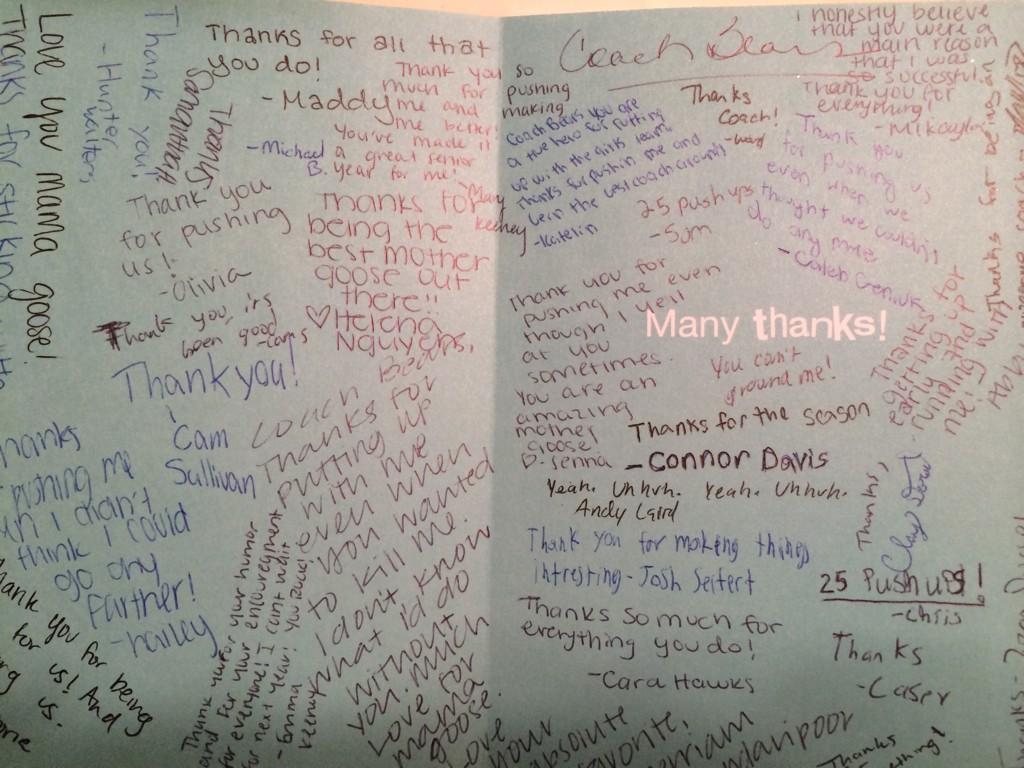 Love you mama goose!
Thanks for sticking with
Thank you!
-Hunter
Walters
Thanks
Samantha
Thanks for all that
you do!
-Maddy
-Michael
B.
Thank you
so much for
pushing me and
making me better!
You've made it
a great senior
year for me!
♡Mary
Keeney
Thank you
for pushing
us!
-Olivia
Thanks for
being the
best mother
goose out
there!!
♡Helena
Nguyens,
Thank you, it's
been good
Thank you!
Cam
Sullivan
Thanks
pushing me
I didn't
think I could
go any
further!
-hailey
Thank you for being
for us! And
us.
Thank you for your humor
and for your encouragement
for everyone! I can't wait
for next year! You Rock!
-Emma
Keeney
Coach Bears
Thanks for
putting up
with me
even when
you wanted
to kill me.
I don't know
what i'd do
without
you. Much
love for
mama
goose.
Love
your
absolute
favorite!
Coach Bears
I honestly believe
that you were a
main reason
that I was
so successful.
Thank you for
everything!
-Mikayla
Thanks
Coach!
Coach Bears you are
a true hero for putting
up with the girls team.
Thanks for pushin me and
bein the best coach around
-Katelin
25 push ups
-Sam
Thank you
for pushing us
even when we
thought we couldn't
do any more
-Caleb
Thank you for
pushing me even
though I yell
at you
sometimes.
You are an
amazing
mother
goose
♡-Jenna
Many thanks!
You can't
ground me!
Thanks for
getting up
early and
running with
me!
Thanks for being an
Thanks for the season
-Connor Davis
Yeah. Uhhuh. Yeah. Uhhuh.
Andy Laird
Thanks,
Thank you for making things
intresting - Josh Seifert
25 Pushups!
-Chris
Thanks so much for
everything you do!
-Cara Hawks
Thanks
-Casey
Thanks